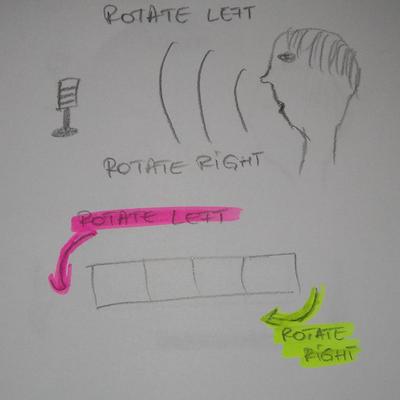 ROTATE LEFT
ROTATE RIGHT
ROTATE LEFT
ROTATE
RIGHT